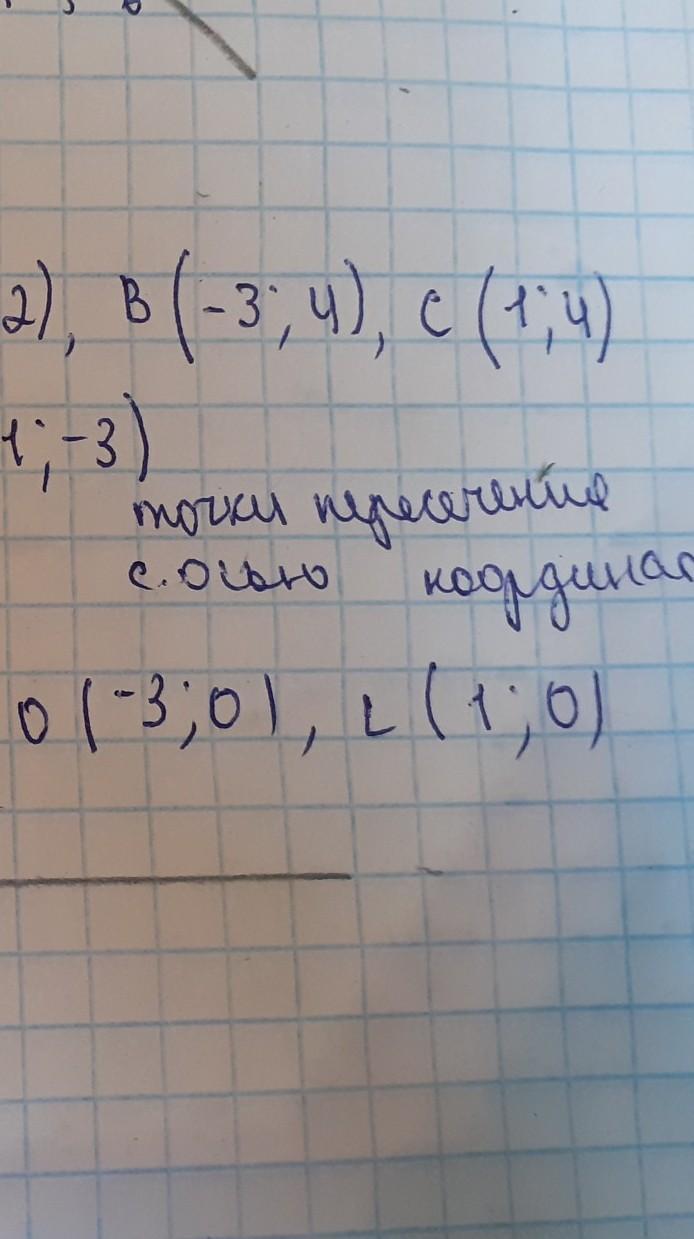 2), В (-3; 4), С (1; 4)
1; -3)
точки пересечения
с. осью координат
О (-3; 0), L (1; 0)